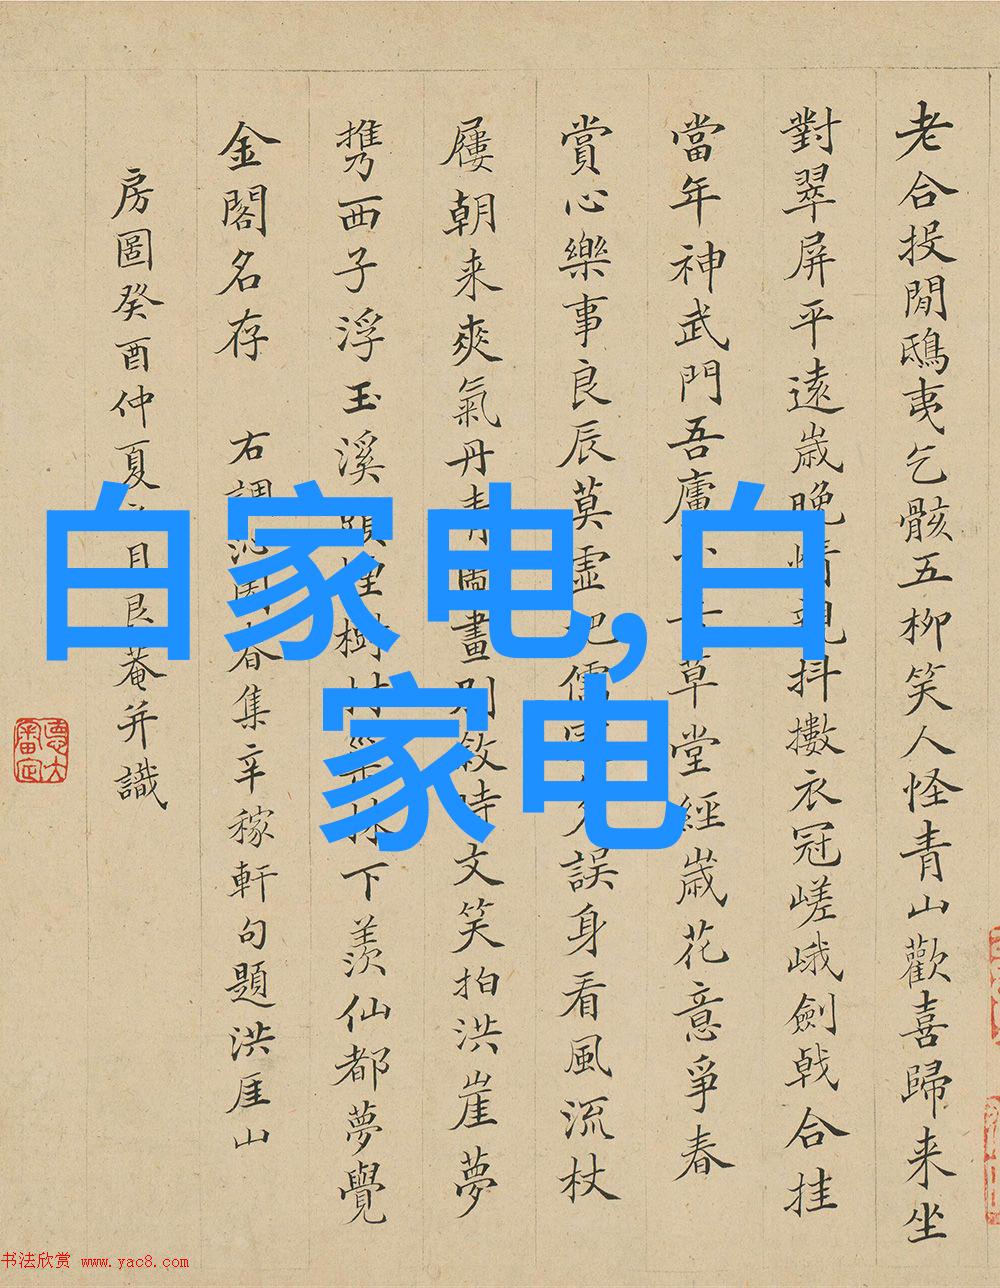 老合投閒鴟夷乞骸五柳笑人怪青山歡喜歸来坐
對翠屏平遠歲晚情親抖擻衣冠嵯峨劍戟合挂
當年神武門吾廬草堂經歲花意爭春
賞心樂事良辰莫虛把儒誤身看風流杖
屨朝来爽氣丹青圖畫別敘時文笑拍洪崖夢
携西子浮玉溪頭樹村林下羨仙都夢覺
金閣名存 右調沁園春集辛稼軒句題洪厓山
房圖癸酉仲夏月艮菴并識
白家电,白
家电
书法欣赏 www.yac8.com